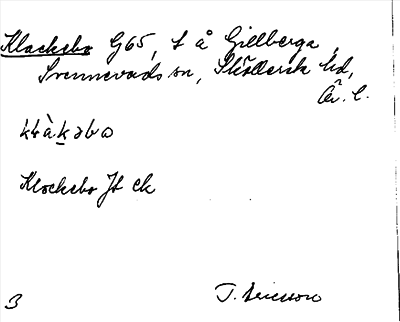 Klacksbo G65, t å Gillberga,
Svennevads sn, Sköllersta hd,
Ör. l.
klàkəbo
Klocksbo Jt ck
3 T. Ericsson